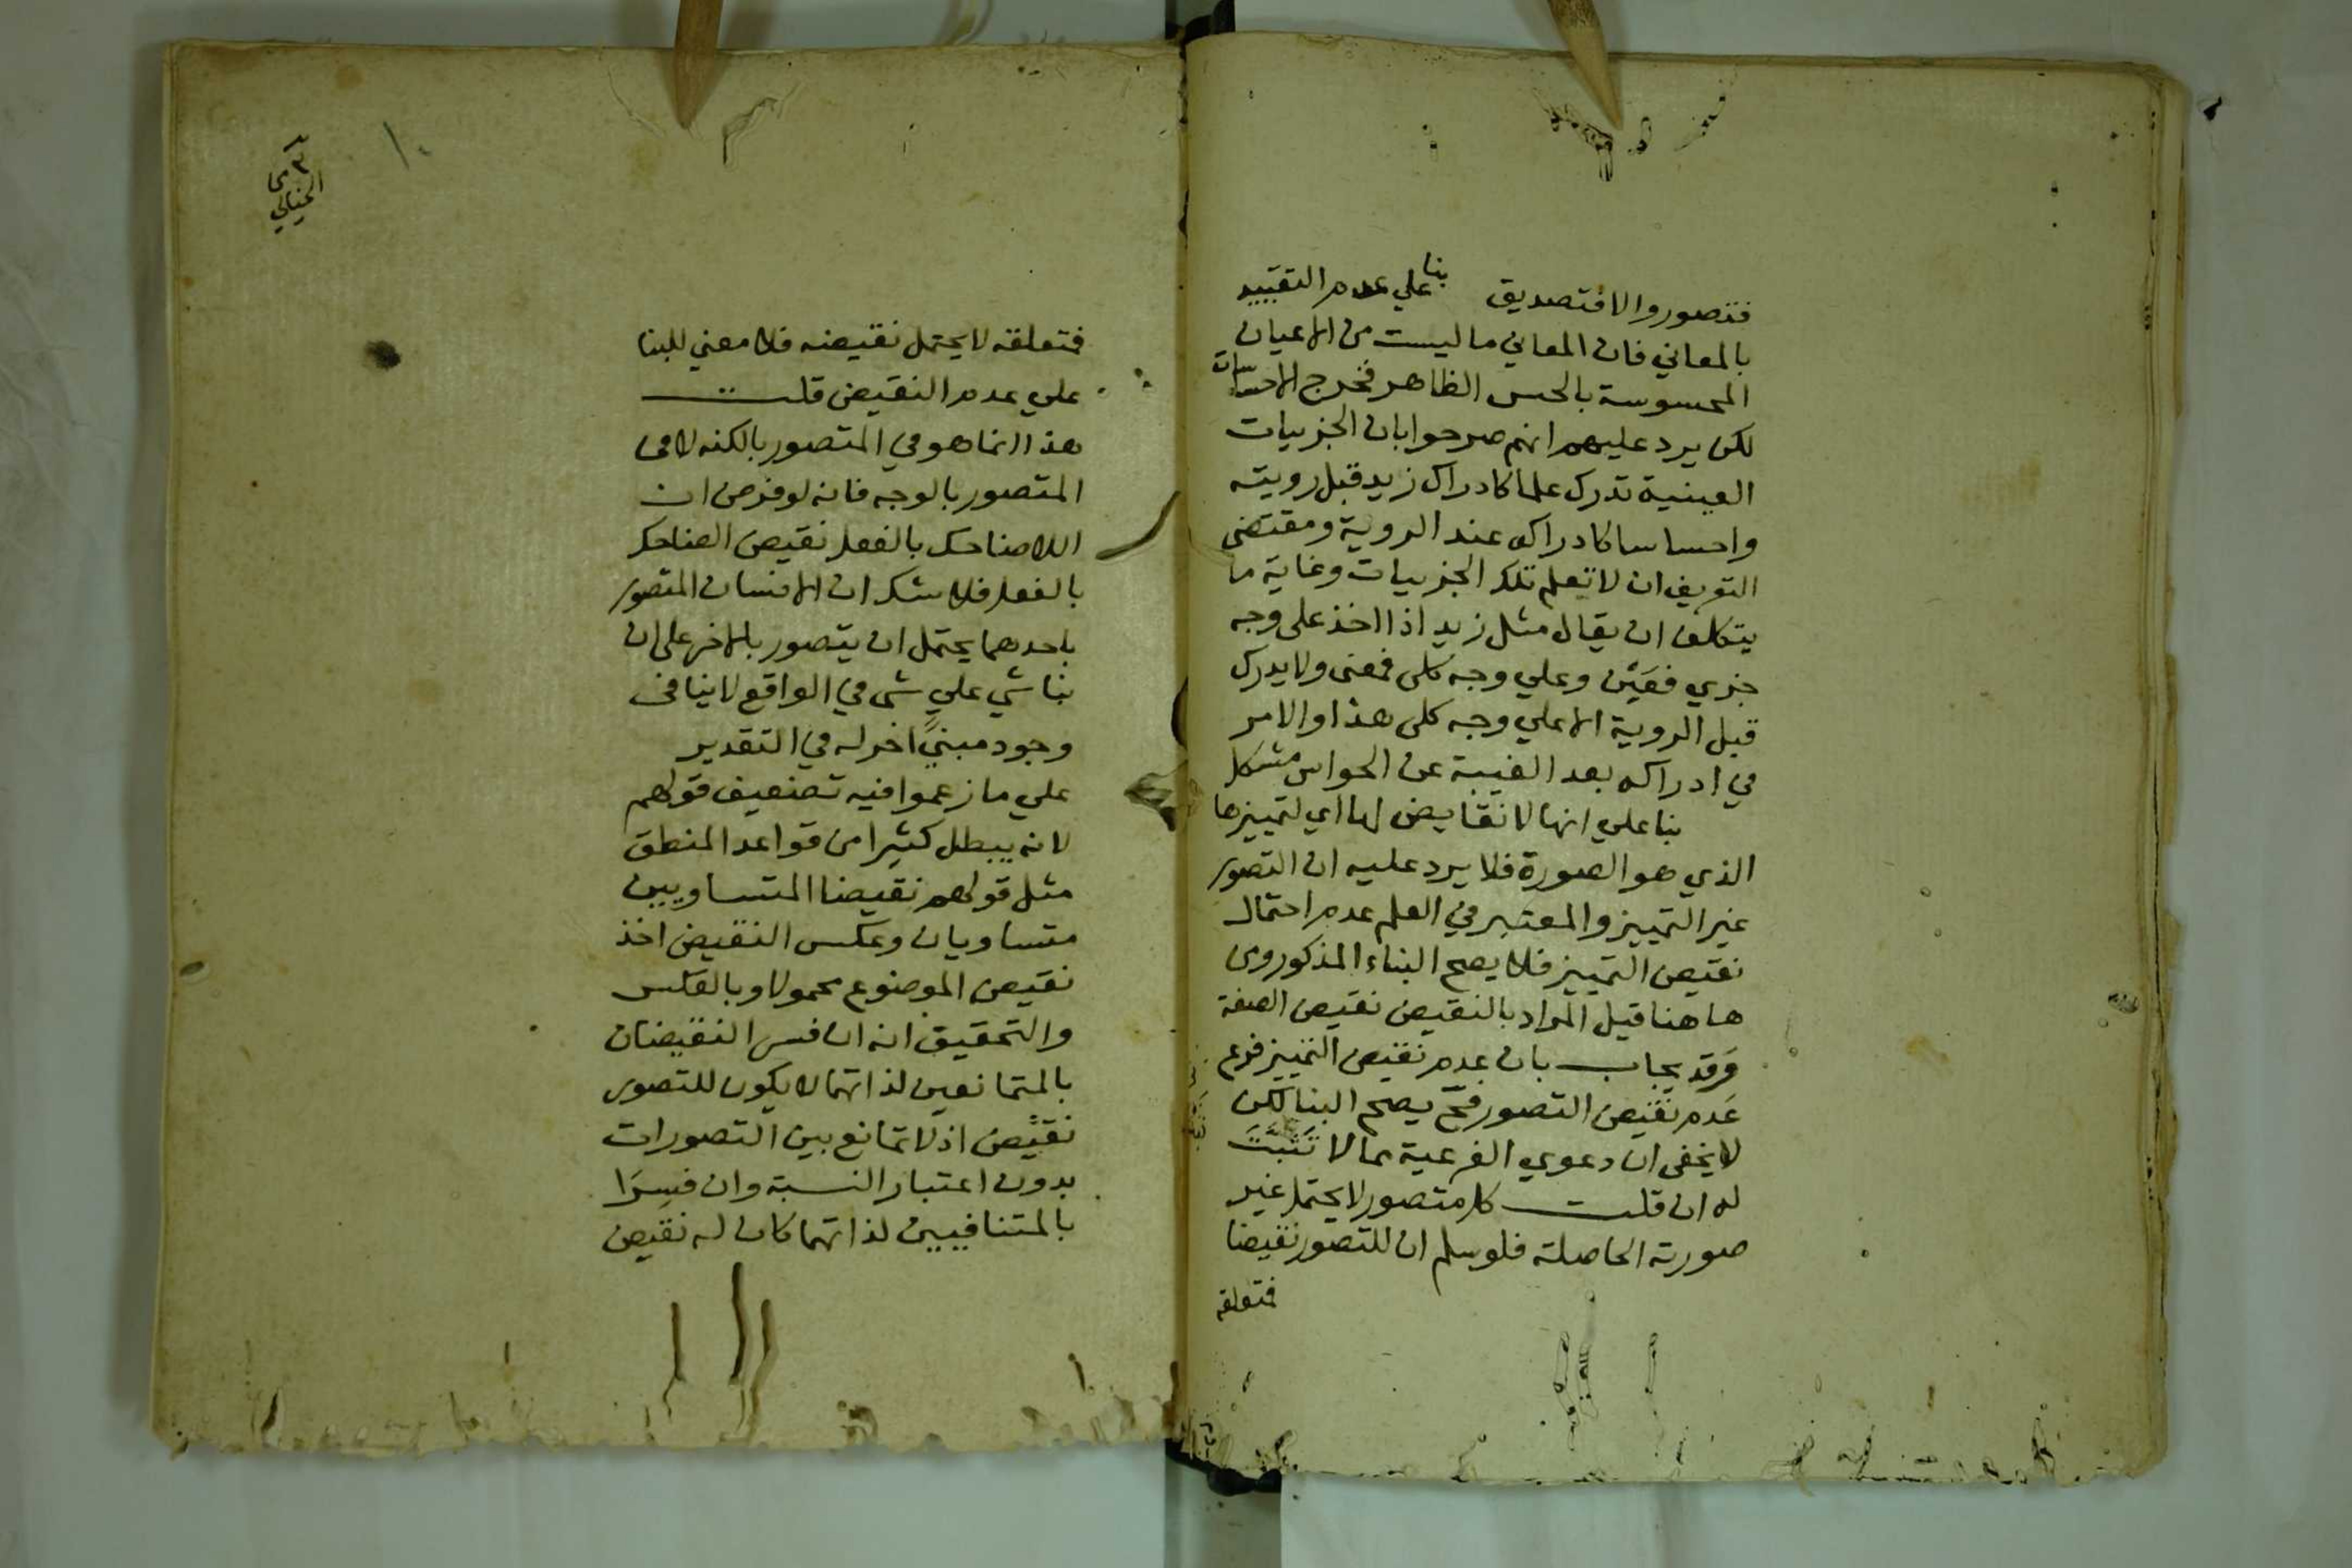 فتصور والا فتصديق بنا علي عدم التقييد
بالمعاني فان المعاني ما ليست من الاعيان
المحسوسة بالحس الظاهر فخرج الاحساسات
لكن يرد عليهم انهم صرحوا بان الجزييات
العينية تدرك علما كادراك زيد قبل رويته
واحساسا كادراكه عند الروية ومقتضى
التعريف ان لا تعلم تلك الجزييات وغاية ما
يتكلف ان يقال مثل زيد اذا اخذ على وجه
جزي فعَيْن وعلي وجه كلى فمعنى ولا يدرك
قبل الروية الا علي وجه كلى هذا والامر
في ادراكه بعد الغيبة عن الحواس مشكل
بنا علي انها لا نقايض لها اي لتمييزها
الذي هو الصورة فلا يرد عليه ان التصور
غير التمييز والمعتبر في العلم عدم احتمال
نقيض التمييز فلا يصح البناء المذكور ومن
هاهنا قيل المراد بالنقيض نقيض الصفة
وقد يجاب بان عدم نقيض التمييز فرع
عدم نقيض التصور فح يصح البنا لكن
لا يخفى ان دعوي الفرعية مما لا تثبت
له ان قلت كل متصور لا يحتمل غير
صورته الحاصلة فلو سلم ان للتصور نقيضا
فتعلقه
١٠
٣
الخيالي
فتعلقه لا يحتمل نقيضه فلا معني للبنا
علي عدم النقيض قلت
هذا انما هو في المتصور بالكنه لا في
المتصور بالوجه فانه لو فرض ان
اللاضاحك بالفعل نقيض الضاحك
بالفعل فلا شك ان الانسان المتصور
باحدهما يحتمل ان يتصور بالاخر على ان
بنا شي علي شى في الواقع لا ينافى
وجود مبنيً اخر له في التقدير
علي ما زعموا فيه تضعيف قولهم
لانه يبطل كثيرا من قواعد المنطق
مثل قولهم نقيضا المتساويين
متساويان وعكس النقيض اخذ
نقيض الموضوع محمولا وبالعكس
والتحقيق انه ان فسر النقيضان
بالمتمانعين لذاتهما لا يكون للتصور
نقيض اذ لا تمانع بين التصورات
بدون اعتبار النسبة وان فسرا
بالمتنافيين لذاتهما كان له نقيض